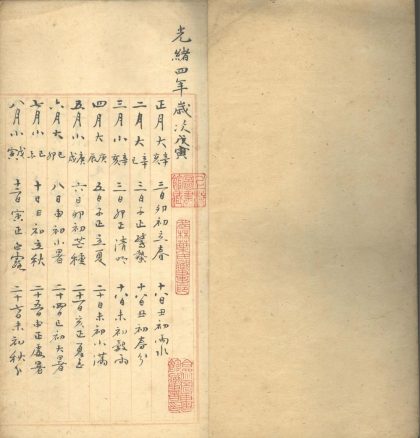 光緒四年歲次戊寅
正月大辛亥 三日卯初立春 十八日丑初雨水
二月大辛巳 三日子正驚蟄 十八日丑初春分
三月小辛亥 三日卯正清明 十八日未初穀雨
四月大庚辰 五日子正立夏 二十日未初小滿
五月小庚戌 六日卯初芒種 二十一日亥正夏至
六月大己卯 八日申初小暑 二十四日巳初大暑
七月小己 十日丑初立秋 二十五日申正處暑
八月小戊寅 十二日寅正白露 二十七日未初秋分